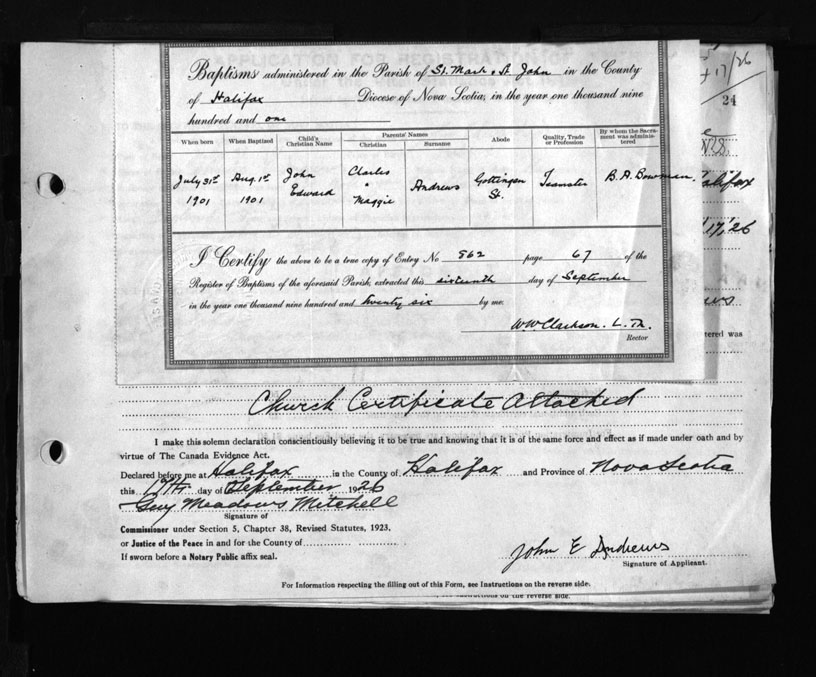 Baptisms administered in the Parish of St. Mark & St. John in the County
of Halifax Diocese of Nova Scotia, in the year one thousand nine
hundred and one
When born When Baptised Child's Christian Name Parents' Names Christian Surname Abode Quality, Trade or Profession By whom the Sacrament was administered
July 31st 1901 Aug. 1st 1901 John Edward Charles & Maggie Andrews Gottingen St. Teamster B. A. Bowman.
I Certify the above to be a true copy of Entry No 962 page 67 of the
Register of Baptisms of the aforesaid Parish, extracted this sixteenth day of September
in the year one thousand nine hundred and twenty six by me.
W.W. Clarkson. L. Th.
Rector
17/26
24
Halifax
17, '26
tered was
Church Certificate Attached
I make this solemn declaration conscientiously believing it to be true and knowing that it is of the same force and effect as if made under oath and by
virtue of The Canada Evidence Act.
Declared before me at Halifax in the County of Halifax and Province of Nova Scotia
this 17th day of September 1926
Guy Meadows Mitchell
Signature of
Commissioner under Section 5, Chapter 38, Revised Statutes, 1923,
or Justice of the Peace in and for the County of
If sworn before a Notary Public affix seal.
John E Andrews
Signature of Applicant.
For Information respecting the filling out of this Form, see Instructions on the reverse side.
see Instructions on the reverse side.